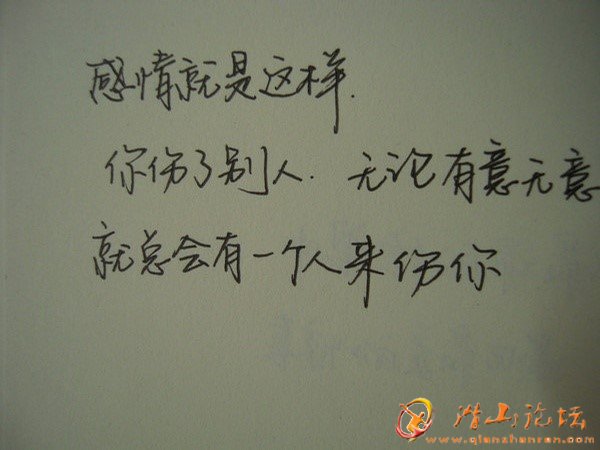 感情就是这样.
你伤了别人. 无论有意无意
就总会有一个人来伤你
潜山论坛
www.qianshanren.com